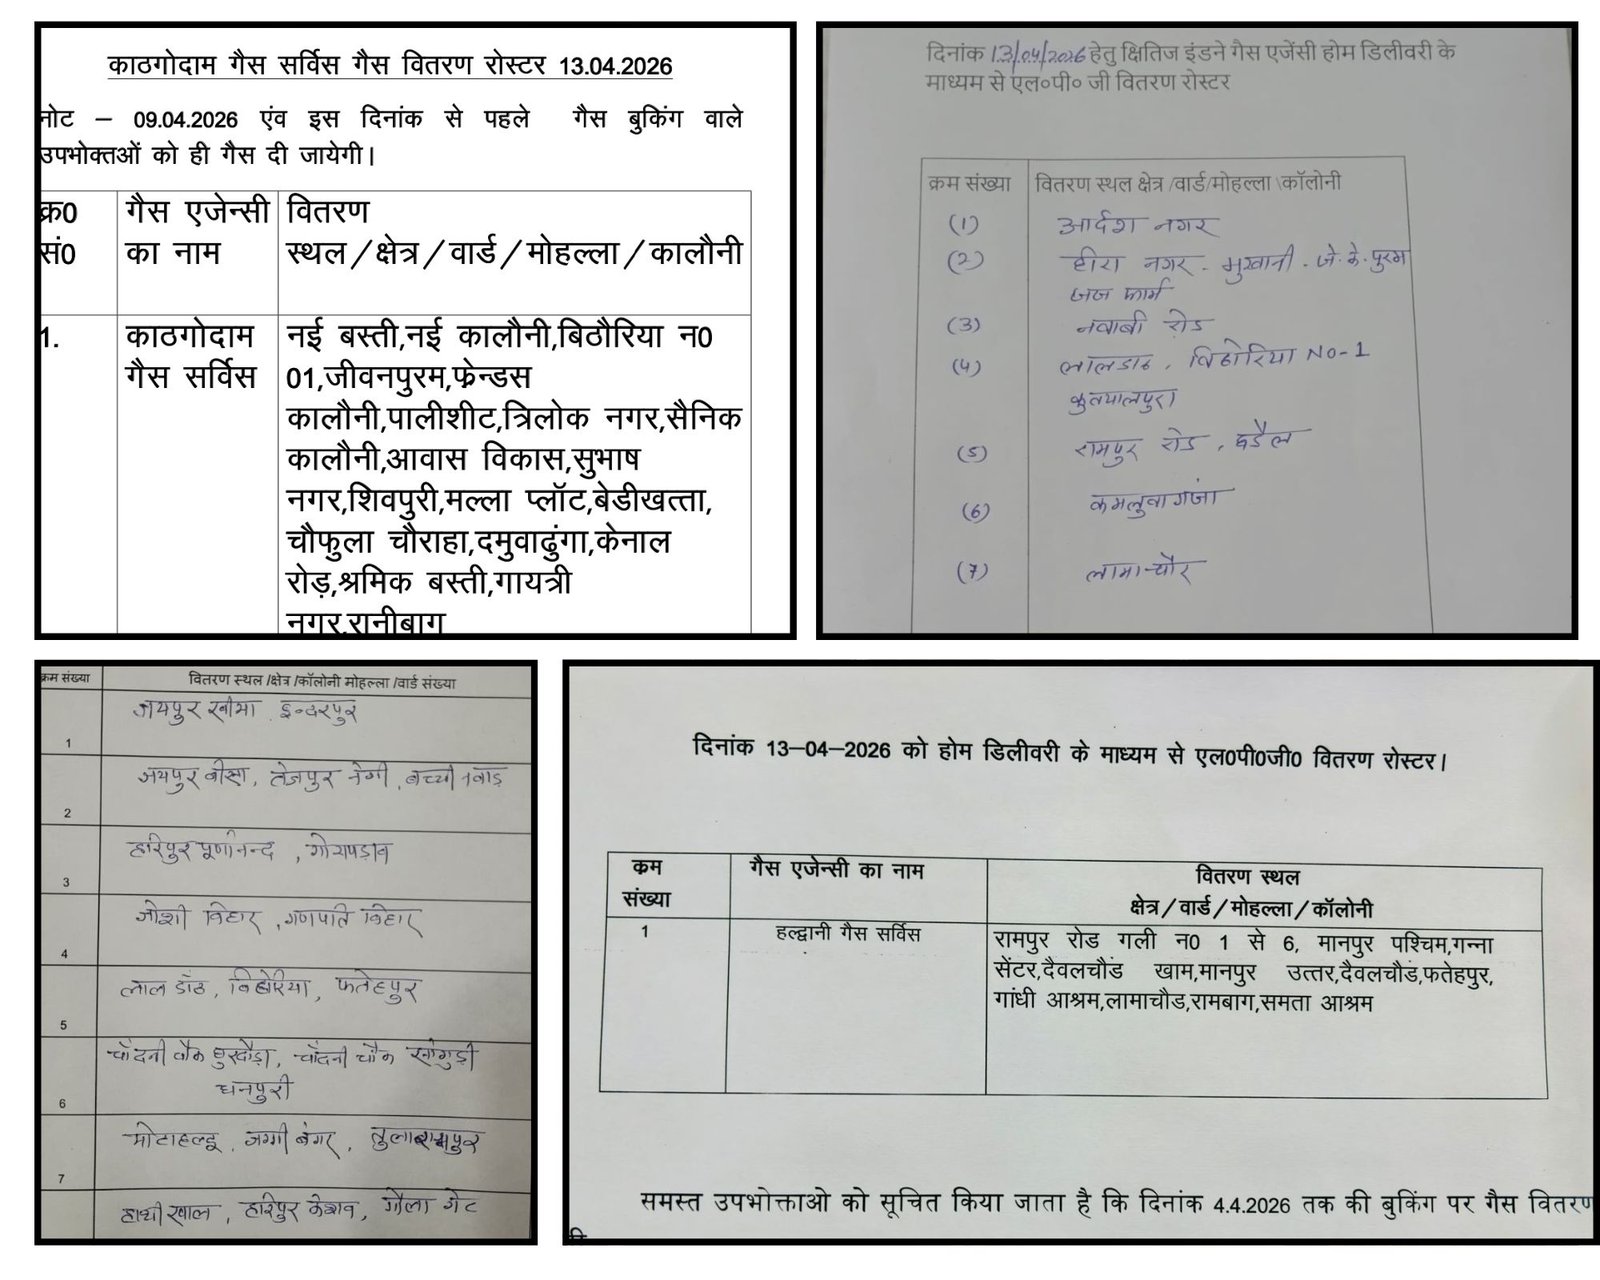 काठगोदाम गैस सर्विस गैस वितरण रोस्टर 13.04.2026
नोट – 09.04.2026 एंव इस दिनांक से पहले गैस बुकिंग वाले
उपभोक्तओं को ही गैस दी जायेगी।
क्र0 गैस एजेन्सी वितरण
सं0 का नाम स्थल/क्षेत्र/वार्ड/मोहल्ला/कालौनी
1. काठगोदाम नई बस्ती,नई कालौनी,बिठौरिया न0
गैस सर्विस 01,जीवनपुरम,फ्रेन्डस
कालौनी,पालीशीट,त्रिलोक नगर,सैनिक
कालौनी,आवास विकास,सुभाष
नगर,शिवपुरी,मल्ला प्लॉट,बेडीखत्ता,
चौफुला चौराहा,दमुवाढुंगा,केनाल
रोड़,श्रमिक बस्ती,गायत्री
नगर,रानीबाग
दिनांक 13/04/2026 हेतु क्षितिज इंडने गैस एजेंसी होम डिलीवरी के
माध्यम से एल०पी० जी वितरण रोस्टर
क्रम संख्या वितरण स्थल क्षेत्र /वार्ड/मोहल्ला \कॉलोनी
(1) आर्दश नगर
(2) हीरा नगर - मुखानी - जे. के. पुरम
जज फार्म
(3) नवाबी रोड
(4) लालडाठ, बिठोरिया No-1
कुतयालपुरा
(5) रामपुर रोड, छडैल
(6) कमलुवागंजा
(7) लामाचौर
क्रम संख्या वितरण स्थल /क्षेत्र /कॉलोनी मोहल्ला /वार्ड संख्या
1 जयपुर खीमा, इन्दरपुर
2 जयपुर बीसा, तेजपुर नेगी, बच्ची नवाड
3 हरिपुर पूर्णानन्द, गोरापड़ाव
4 जोशी विहार, गणपति विहार
5 लाल डॉठ, बिठोरिया, फतेहपुर
6 चाँदनी चौक घुड़दौड़ा, चाँदनी चौक
धनपुरी
7 मोटाहल्दू, जग्गी बंगर, तुलारामपुर
हाथीखाल, हरिपुर केशव, गौला गेट
दिनांक 13–04–2026 को होम डिलीवरी के माध्यम से एल0पी0जी0 वितरण रोस्टर।
कम गैस एजेन्सी का नाम वितरण स्थल
संख्या क्षेत्र/वार्ड/मोहल्ला/कॉलोनी
1 हल्द्वानी गैस सर्विस रामपुर रोड गली न0 1 से 6, मानपुर पश्चिम,गन्ना
सेंटर,दैवलचौड खाम,मानपुर उत्तर,दैवलचौड,फतेहपुर,
गांधी आश्रम,लामाचौड,रामबाग,समता आश्रम
समस्त उपभोक्ताओ को सूचित किया जाता है कि दिनांक 4.4.2026 तक की बुकिंग पर गैस वितरण